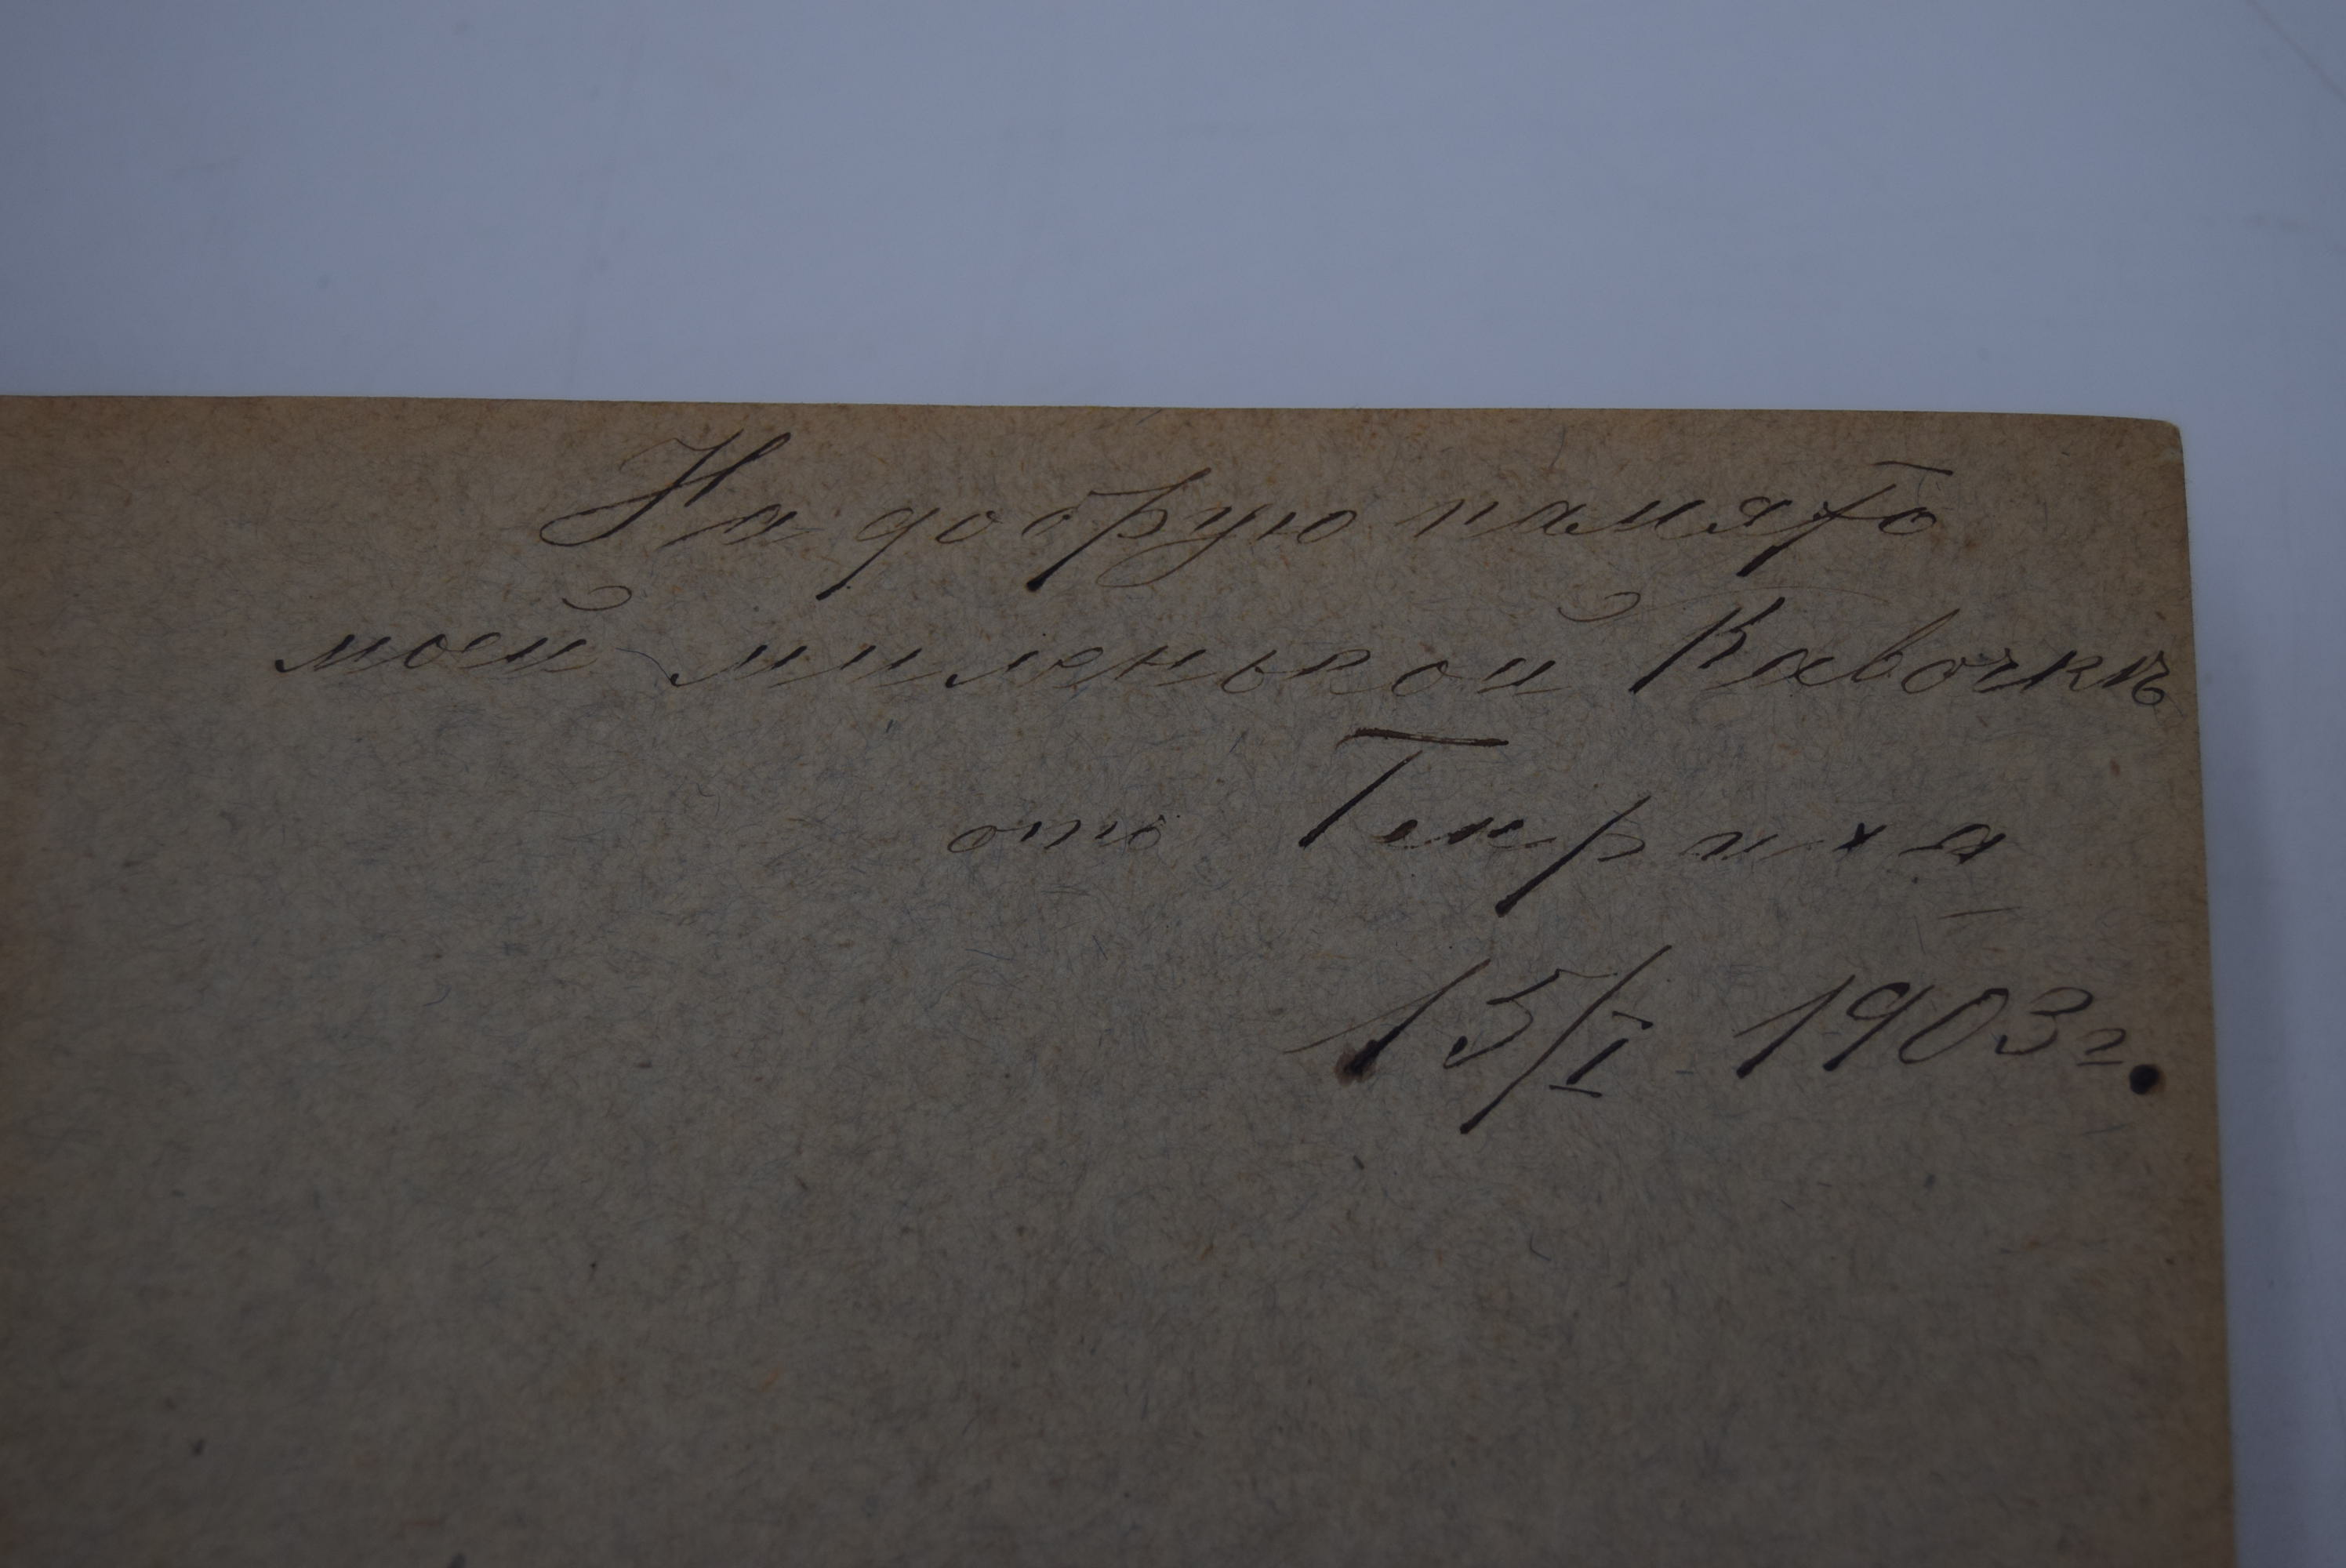 На добрую память
моей миленькой Кавочкѣ
отъ Генриха
15/I 1903 г.